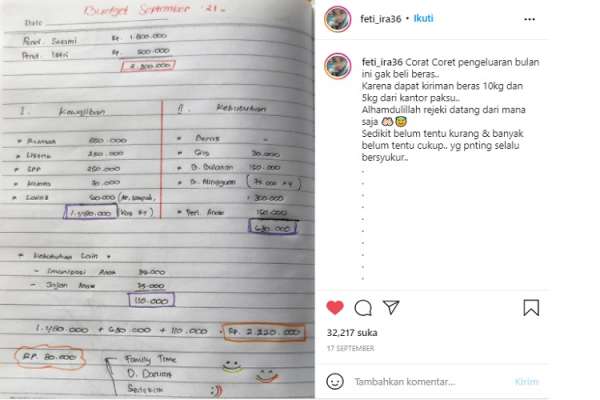 Budget September '21
Date
Pend. Suami Rp. 1.800.000
Pend. Istri Rp. 500.000
2.300.000
I. Kewajiban
II. Kebutuhan
* Rumah
* Listrik
* SPP 250.000
* Beras -
* Gas 30.000
* B. Bulanan 150.000
* B. Mingguan (75.000 x4)
= 300.000
1.480.000
* Peri. Anak 150.000
630.000
* Kebutuhan Lain *
- Imunisasi Anak
- Jajan Anak
110.000
1.480.000 + 630.000 + 110.000 = Rp. 2.220.000
RP. 80.000
- Family Time
D. Darurat
Sedekah
:))
feti_ira36 • Ikuti
feti_ira36 Corat Coret pengeluaran bulan
ini gak beli beras..
Karena dapat kiriman beras 10kg dan
5kg dari kantor paksu..
Alhamdulillah rejeki datang dari mana
saja
Sedikit belum tentu kurang & banyak
belum tentu cukup.. yg pnting selalu
bersyukur..
.
.
.
.
.
.
.
.
32,217 suka
17 SEPTEMBER
Tambahkan komentar...
Kirim